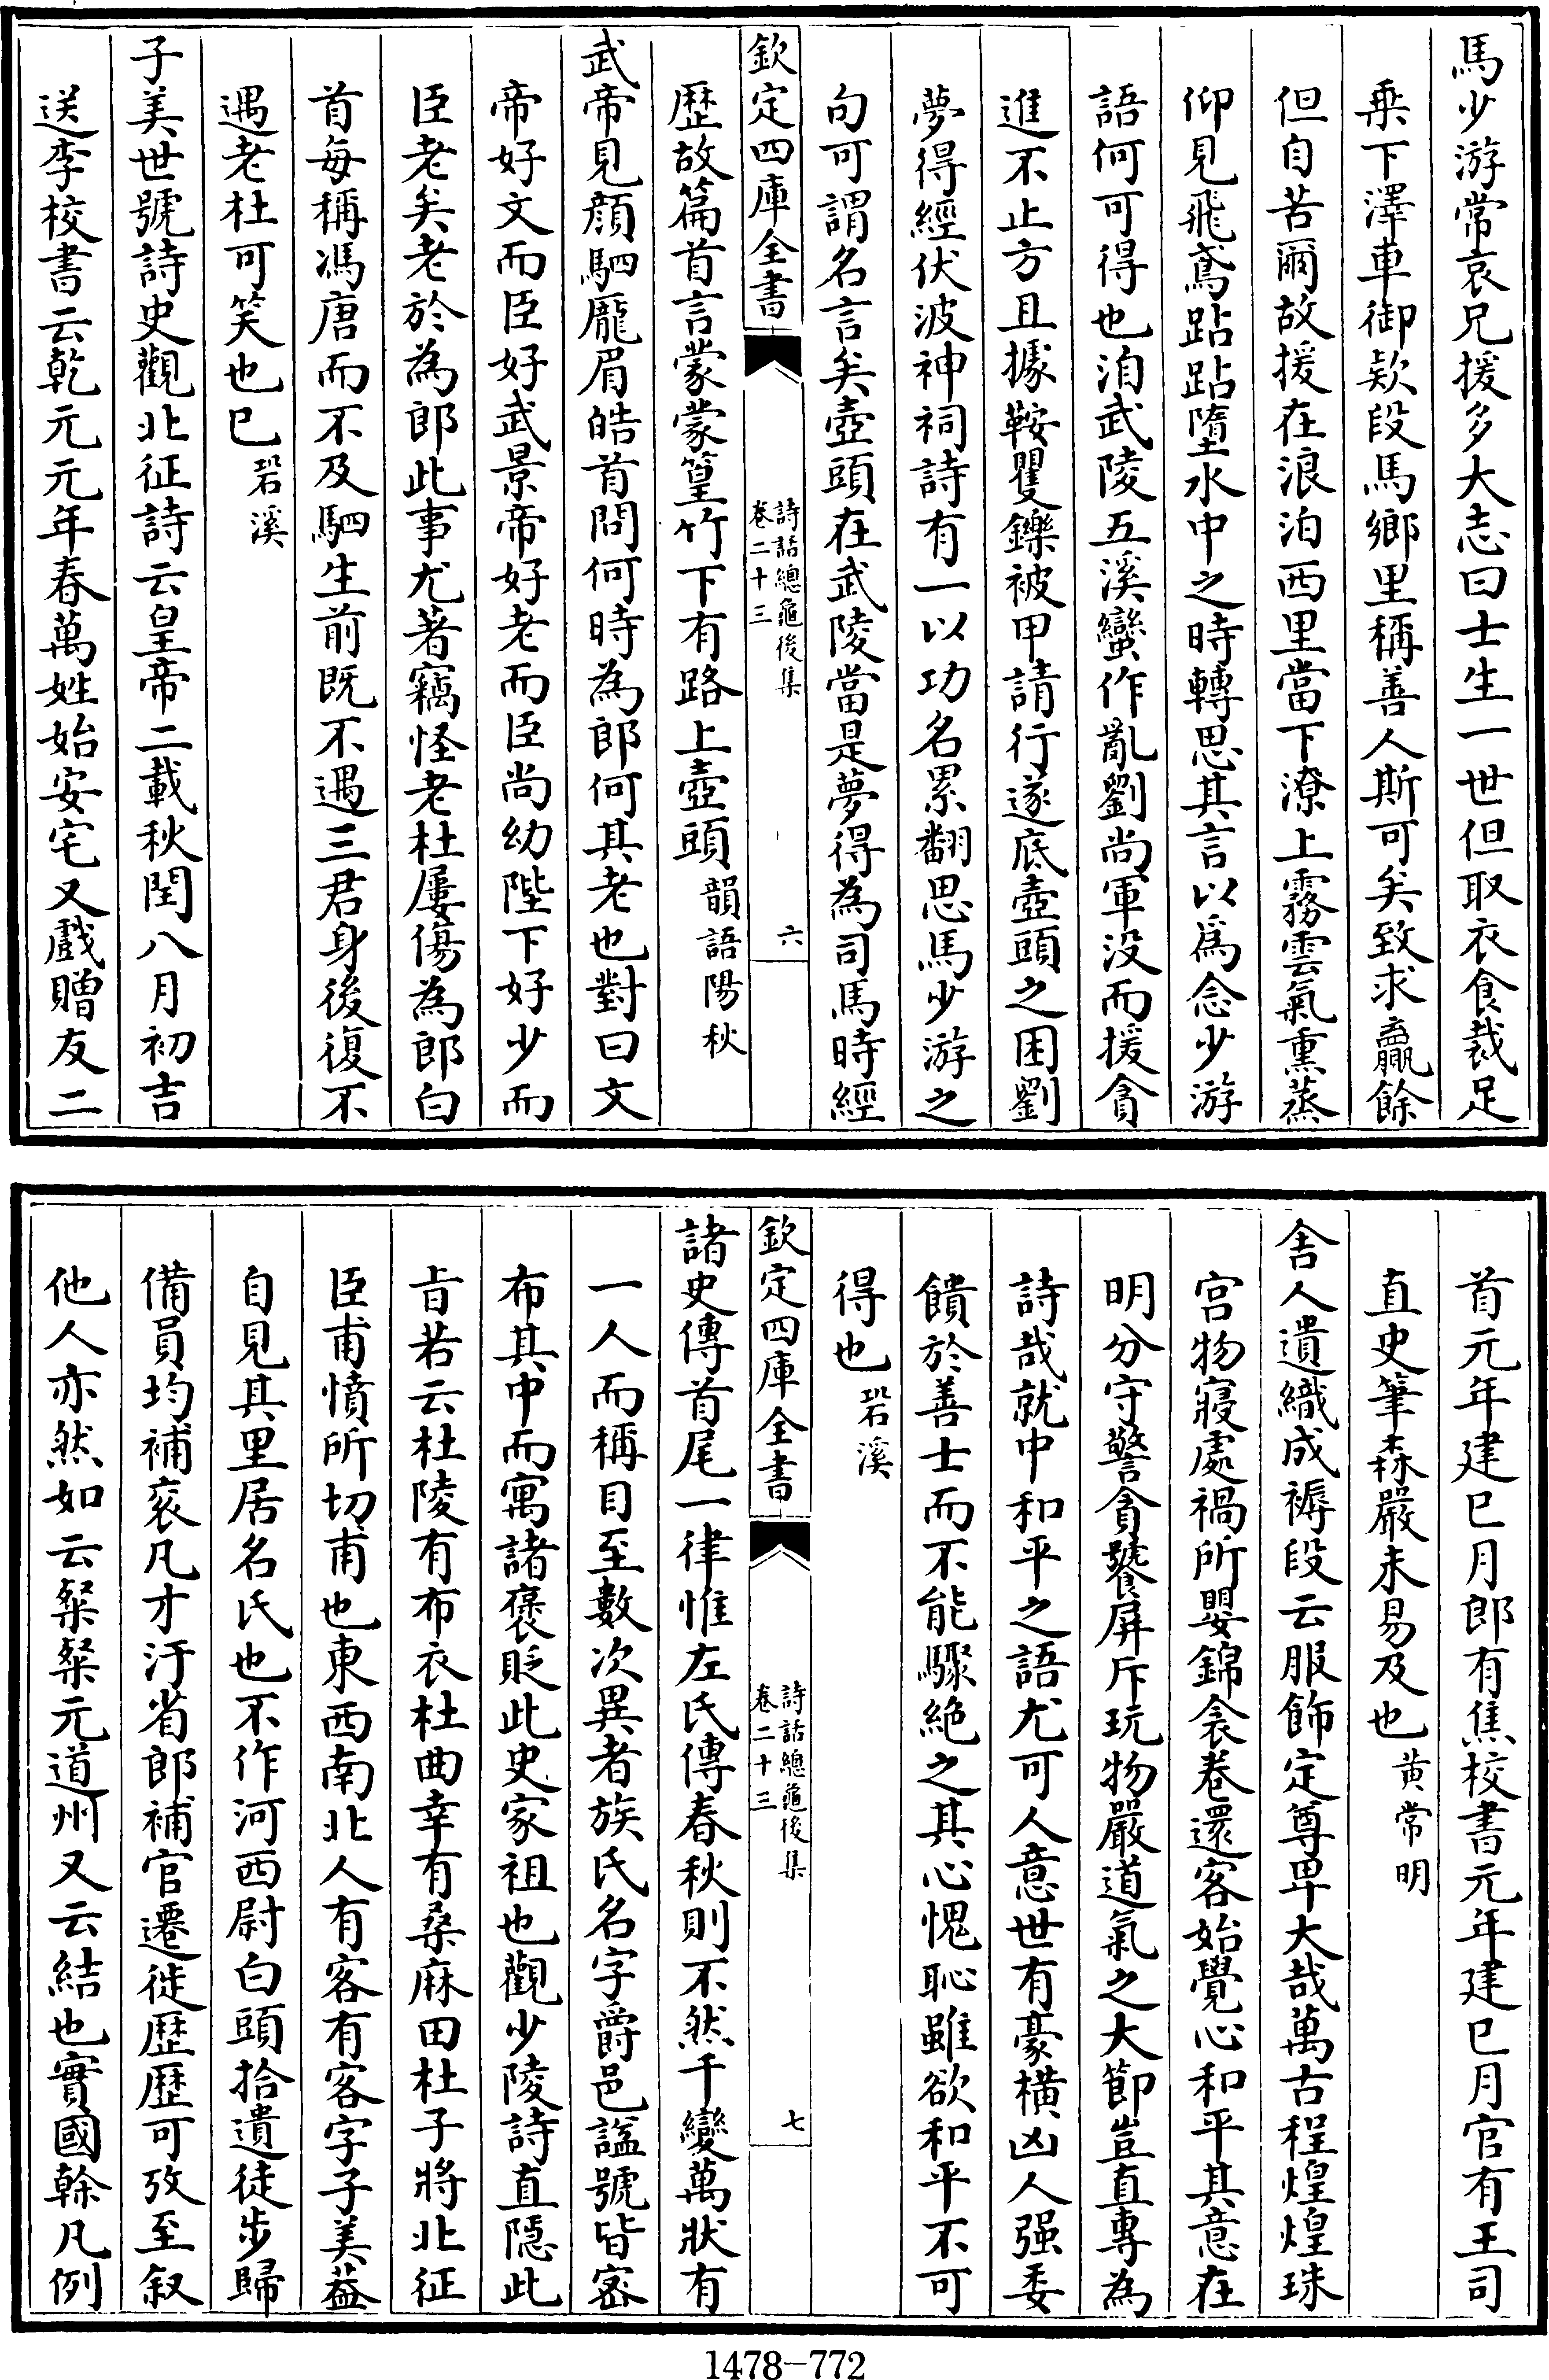 馬少游常哀兄援多大志曰士生一世但取衣食裁足
乗下澤車御欵段馬鄉里稱善人斯可矣致求贏餘
但自苦爾故援在浪泊西里當下潦上霧雲氣熏蒸
仰見飛鳶跕跕墮水中之時轉思其言以為念少游
語何可得也洎武陵五溪蠻作亂劉尚軍没而援貪
進不止方且據鞍矍鑠被甲請行遂底壺頭之困劉
夢得經伏波神祠詩有一以功名累翻思馬少游之
句可謂名言矣壺頭在武陵當是夢得為司馬時經
欽定四庫全書
詩話總龜後集
卷二十三
六
歷故篇首言蒙蒙篁竹下有路上壺頭韻語陽秋
武帝見顔駟龎眉皓首問何時為郎何其老也對曰文
帝好文而臣好武景帝好老而臣尚幼陛下好少而
臣老矣老於為郎此事尤著竊怪老杜屢傷為郎白
首每稱馮唐而不及駟生前既不遇三君身後復不
遇老杜可笑也已䂬溪
子美世號詩史觀北征詩云皇帝二載秋閏八月初吉
送李校書云乾元元年春萬姓始安宅又戲贈友二
首元年建巳月郎有焦校書元年建巳月官有王司
直史筆森嚴未易及也黄常明
舍人遺織成褥段云服飾定尊卑大哉萬古程煌煌珠
宫物寢處禍所嬰錦衾卷還客始覺心和平其意在
明分守警貪饕屏斥玩物嚴道氣之大節豈直專為
詩哉就中和平之語尤可人意世有豪横凶人强委
饋於善士而不能驟絶之其心愧恥雖欲和平不可
得也䂬溪
欽定四庫全書
詩話總龜後集
卷二十三
七
諸史傳首尾一律惟左氏傳春秋則不然千變萬狀有
一人而稱目至數次異者族氏名字爵邑諡號皆宻
布其中而寓諸褒貶此史家祖也觀少陵詩直隱此
㫖若云杜陵有布衣杜曲幸有桑麻田杜子將北征
臣甫憤所切甫也東西南北人有客有客字子美葢
自見其里居名氏也不作河西尉白頭拾遺徒步歸
備員均補衮凡才汙省郎補官遷徙歷歷可攷至叙
他人亦然如云粲粲元道州又云結也實國幹凡例
1478-772